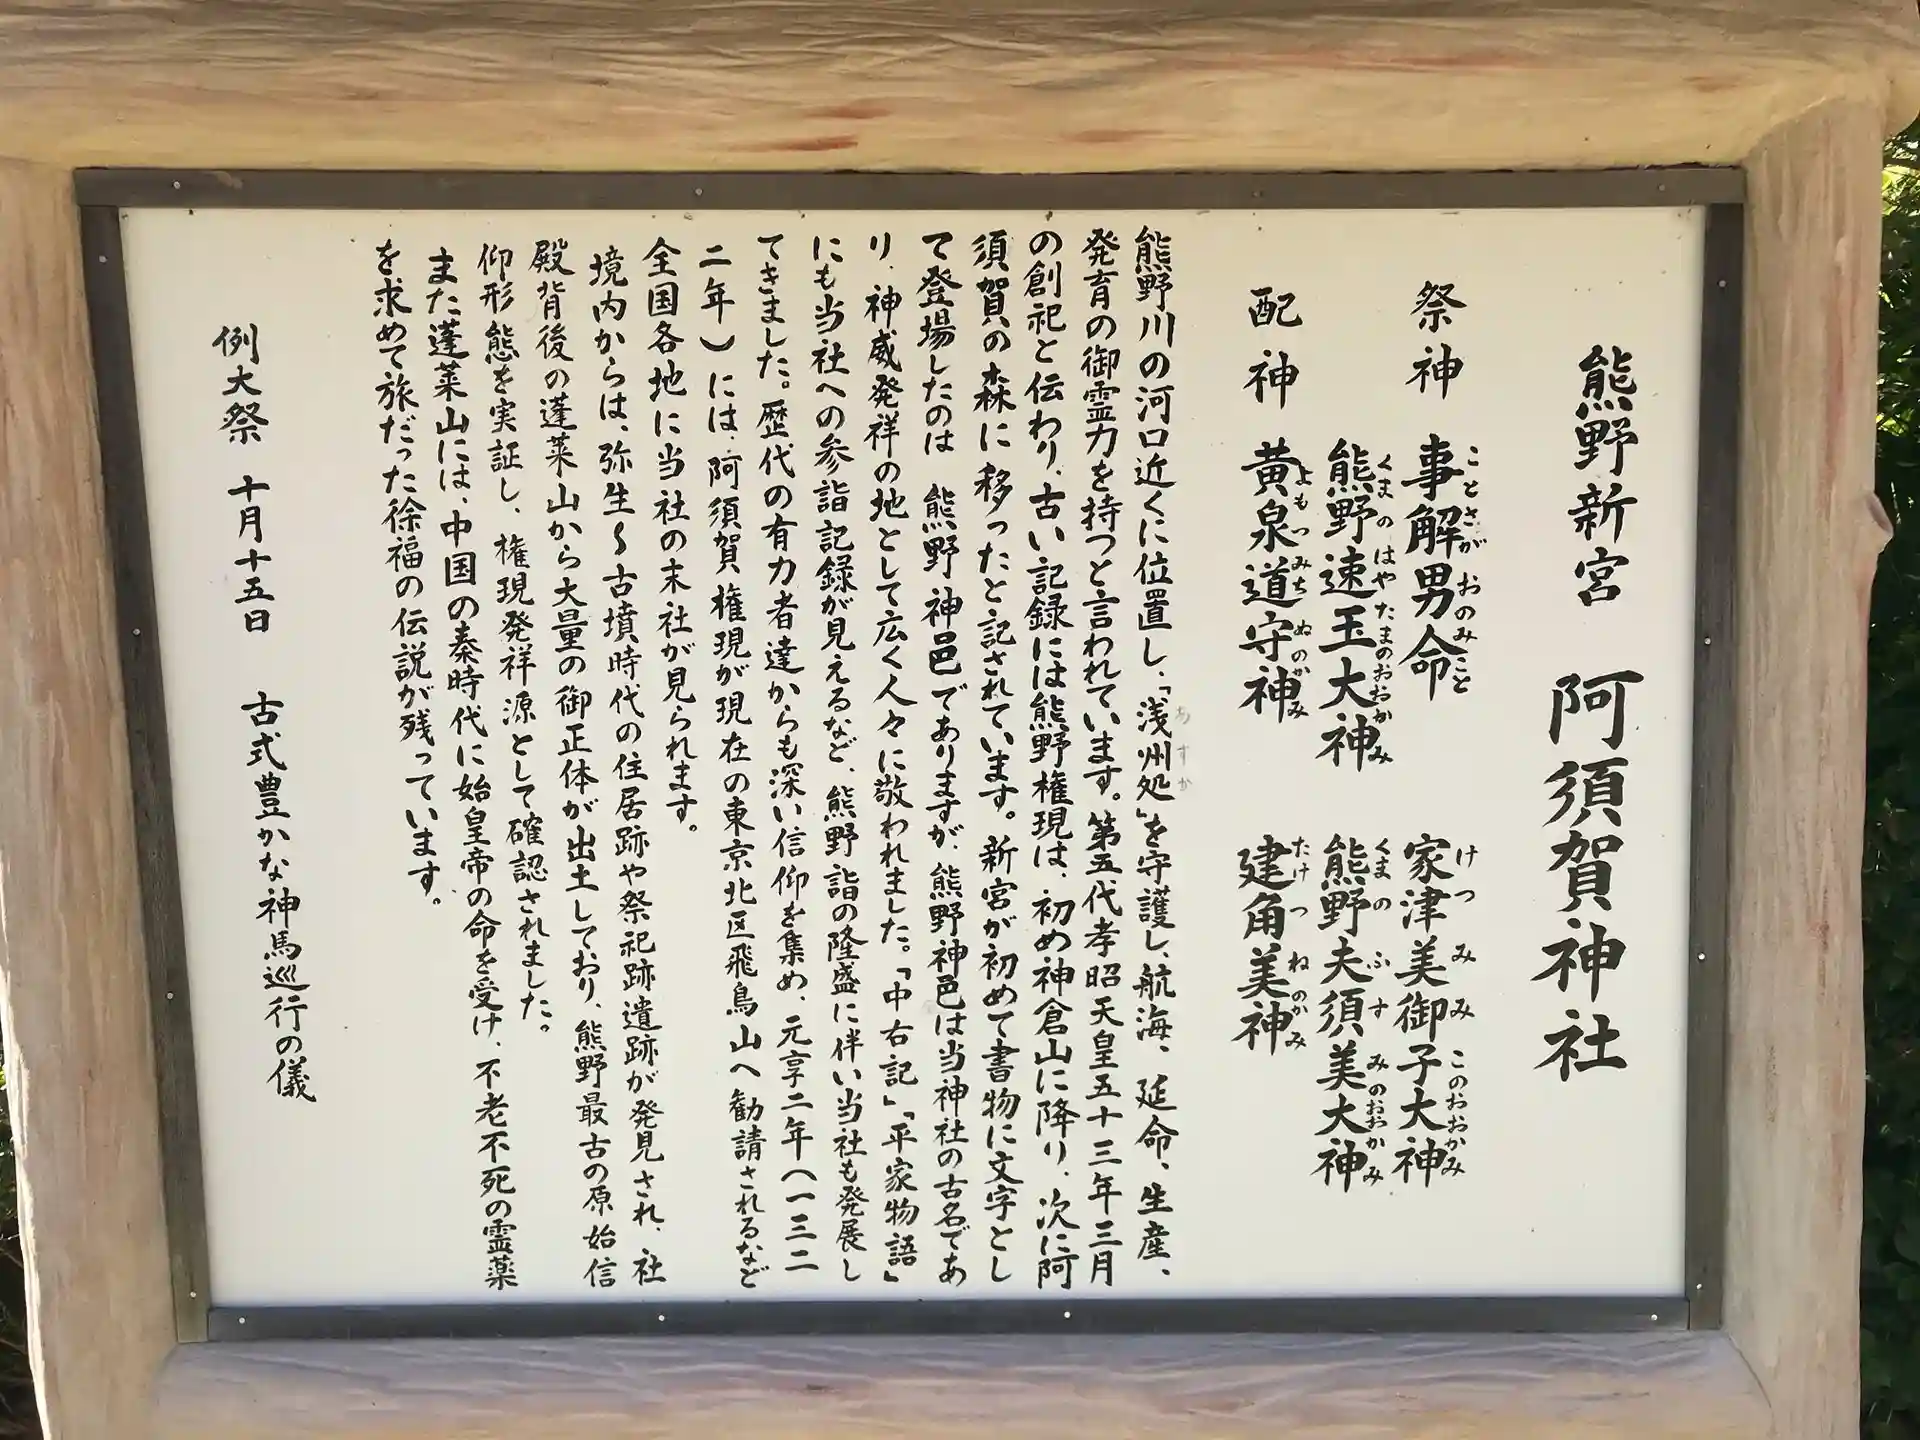 熊野新宮 阿須賀神社
祭神 事解男命 家津美御子大神
ことさかおのみこと けつみみこのおおかみ
熊野速玉大神 熊野夫須美大神
くまのはやたまのおおかみ くまのふすみのおおかみ
配神 黄泉道守神 建角美神
よもつみちぬのかみ たけつねのかみ
熊野川の河口近くに位置し、「浅州処」を守護し、航海、延命、生産、
あすか
発育の御霊力を持つと言われています。第五代孝昭天皇五十三年三月
の創祀と伝わり、古い記録には熊野権現は、初め神倉山に降り、次に阿
須賀の森に移ったと記されています。新宮が初めて書物に文字とし
て登場したのは 熊野神邑でありますが、熊野神邑は当神社の古名であ
り、神威発祥の地として広く人々に敬われました。「中右記」「平家物語」
にも当社への参詣記録が見えるなど、熊野詣の隆盛に伴い当社も発展し
てきました。歴代の有力者達からも深い信仰を集め、元享二年（一三二
二年）には、阿須賀権現が現在の東京北区飛鳥山へ勧請されるなど
全国各地に当社の末社が見られます。
境内からは、弥生〜古墳時代の住居跡や祭祀跡遺跡が発見され、社
殿背後の蓬莱山から大量の御正体が出土しており、熊野最古の原始信
仰形態を実証し、権現発祥源として確認されました。
また蓬莱山には、中国の秦時代に始皇帝の命を受け、不老不死の霊薬
を求めて旅だった徐福の伝説が残っています。
例大祭 十月十五日 古式豊かな神馬巡行の儀